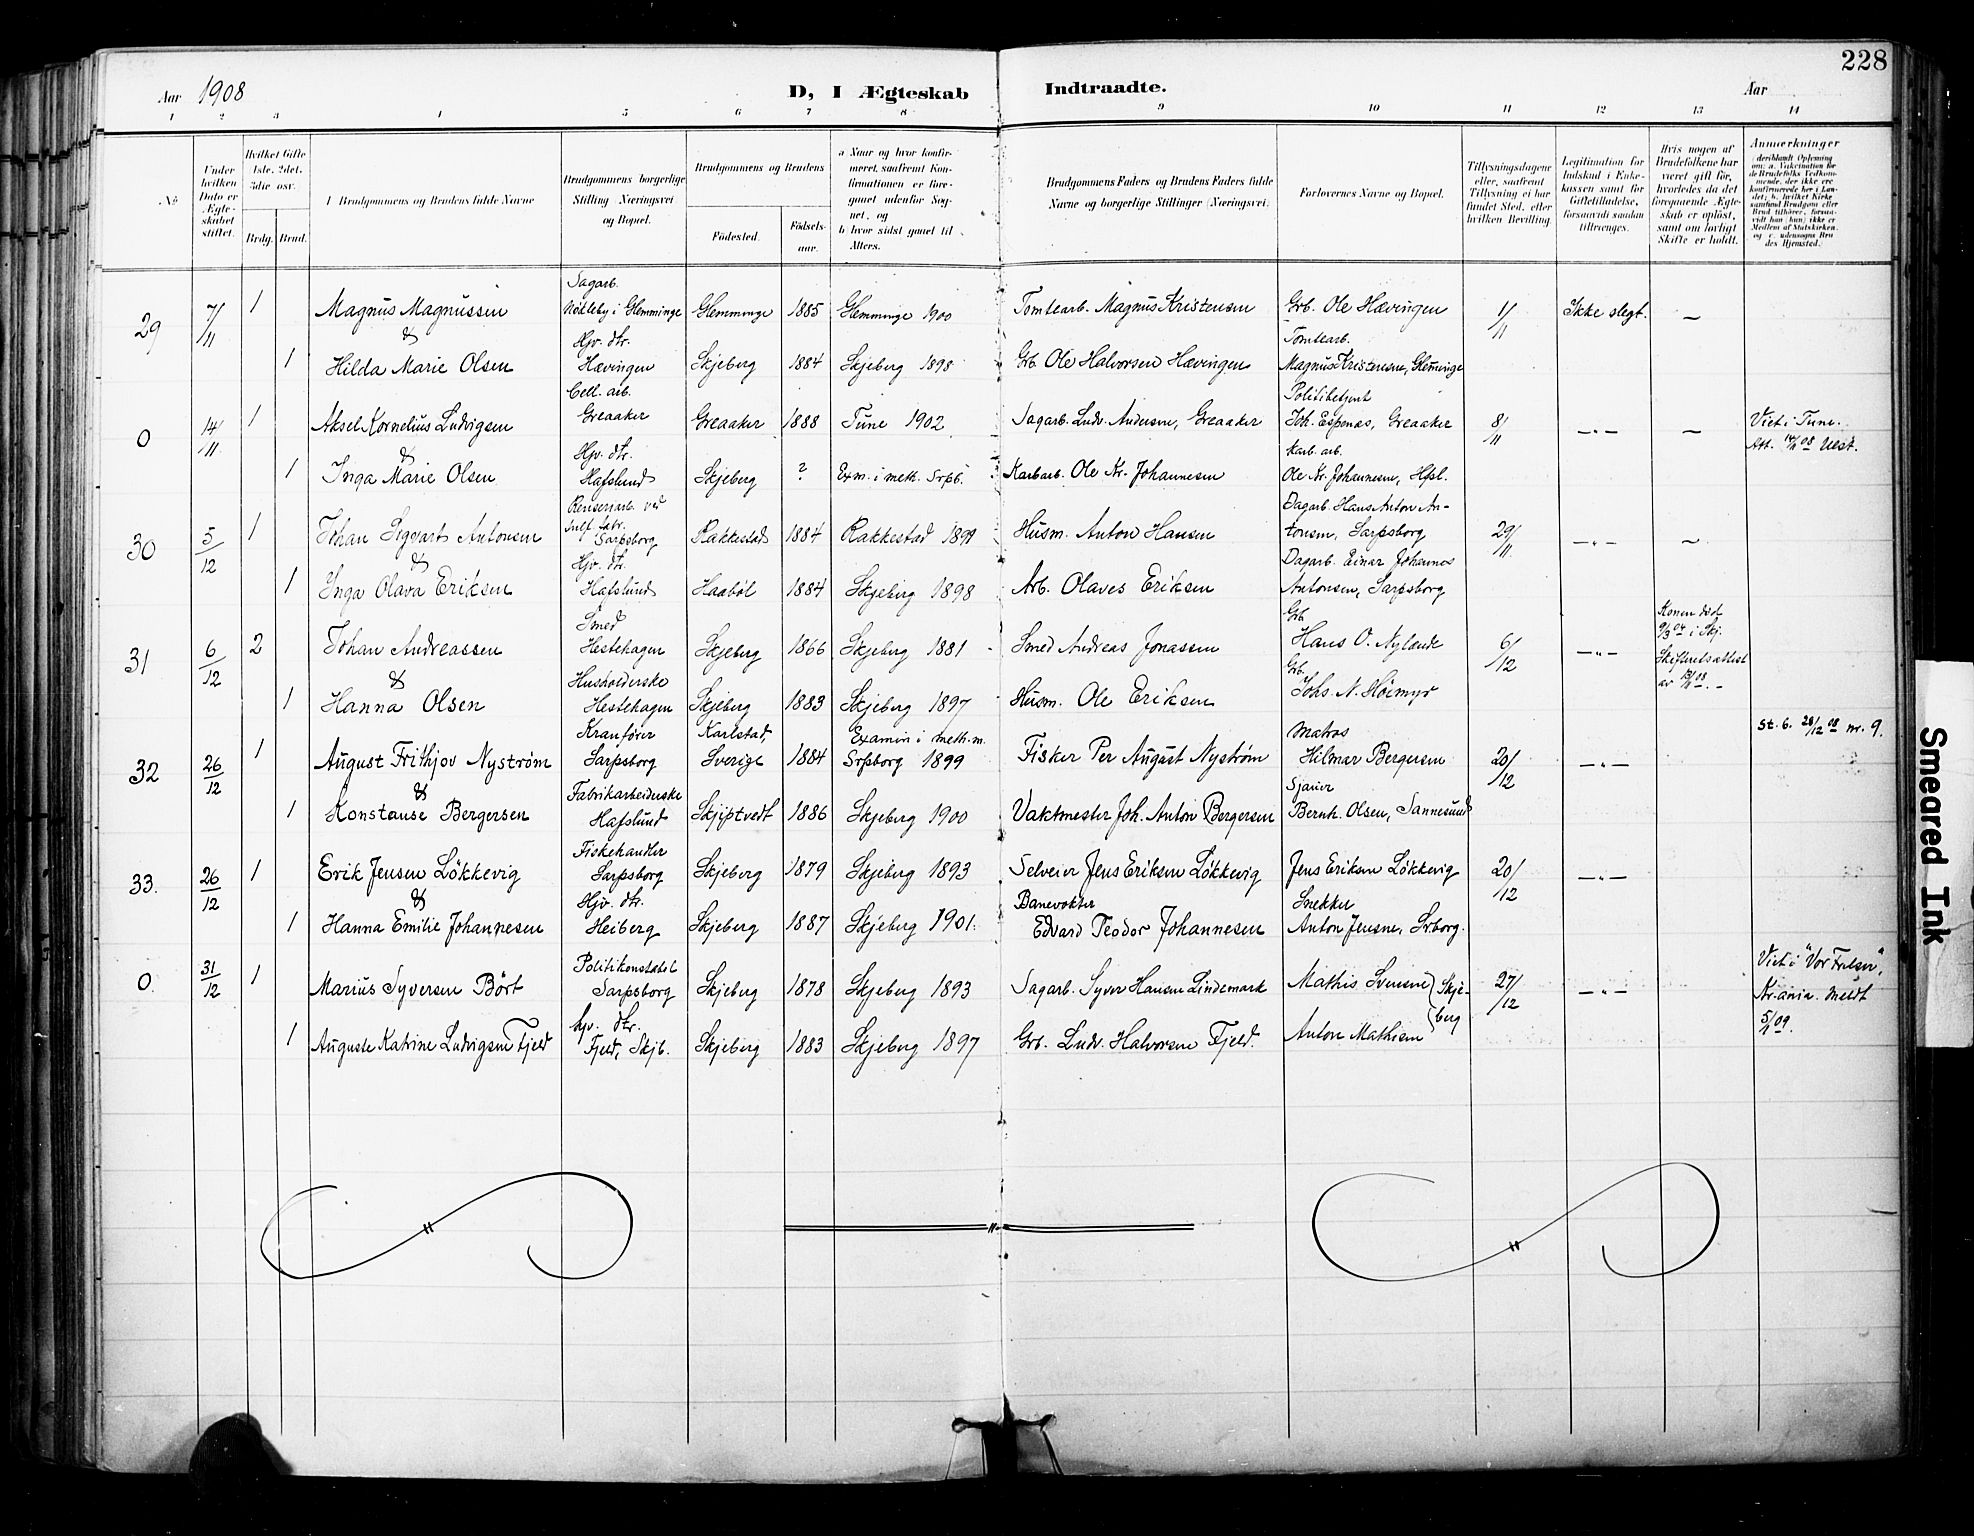 228
Aar 1908
D, I Ægteskab Indtraadte.
Aar
1 2 3 4 5 6 7 8 9 10 11 12 13 14
No.
Under hvilken Dato er Ægteskabet stiftet.
Hvilket Gifte 1ste, 2det, 3die osv.
Brdg. Brud.
Brudgommens og Brudens fulde Navne
Brudgommens borgerlige Stilling (Næringsvei) og Bopæl.
Brudgommens og Brudens
Fødested.
Fødselsaar.
a Naar og hvor konfirmeret, saafremt Konfirmationen er foregaaet udenfor Sognet, og
b hvor sidst gaaet til Alters.
Brudgommens Faders og Brudens Faders fulde Navne og borgerlige Stillinger (Næringsvei)
Forlovernes Navne og Bopæl.
Tillysningsdagene eller, saafremt Tillysning ei har fundet Sted, efter hvilken Bevilling.
Legitimation for Indskud i Enkekassen samt for Giftetilladelse, forsaavidt saadan tiltrænges.
Hvis nogen af Brudefolkene har været gift før, hvorledes da det foregaaende Ægteskab er opløst, samt om lovligt Skifte er holdt.
Anmærkninger
29 7/11 1 Magnus Magnussen Sagarb. Nölleby i Glemminge Glemminge 1885 Glemminge 1900 Tomtearb. Magnus Kristensen Grb. Ole Hævingen 1/11 Ikke slegt. —
&
1 Hilda Marie Olsen Hjv. dtr. Hævingen Skjeberg 1884 Skjeberg 1898 Grb. Ole Halvorsen Hævingen Tomtearb. Magnus Kristensen, Gleminge
0 14/11 1 Aksel Kornelius Ludvigsen Cell. arb. Greaaker Greaaker 1888 Tune 1902 Sagarb. Ludv. Andersen, Greaaker Politibetjent Joh. Espenæs, Greaaker 8/11 —"— — Viet i Tune. Att. 14/11 08 Uesk.
&
1 Inga Marie Olsen Hjv. dtr. Hafslund Skjeberg ? Exm. i meth. Srpb. Karbarb. Ole Kr. Johannesen Karb. arb. Ole Kr. Johannesen, Hfsl.
30 5/12 1 Johan Sigvart Antonsen Renseriarb. ved Sulf. fabr. Sarpsborg Rakkestad 1884 Rakkestad 1899 Husm. Anton Hansen Dagarb. Hans Anton Antonsen, Sarpsborg 29/11 —"— —
&
1 Inga Olava Eriksen Hjv. dtr. Hafslund Haabøl 1884 Skjeberg 1898 Arb. Olaves Eriksen Dagarb. Einar Johannes Antonsen, Sarpsborg
31 6/12 2 Johan Andreassen Smed Hestehagen Skjeberg 1866 Skjeberg 1881 Smed Andreas Jonassen Grb. Hans O. Nylande 6/12 —"— Konen död 9/3 04 i Skj. Skifteretsattest av 13/11 08.
&
1 Hanna Olsen Husholderske Hestehagen Skjeberg 1883 Skjeberg 1897 Husm. Ole Eriksen Grb. Johs. N. Høimyr
32 26/12 1 August Frithjov Nyström Kranfører Sarpsborg Karlstad, Sverige 1884 Examen i meth. m. Srpsborg 1899 Fisker Per August Nyström Matros Hilmar Bergersen 20/12 —"— St. 6. 28/12 08 nr. 9.
&
1 Konstanse Bergersen Fabrikarbeiderske Hafslund Skjiptvedt 1886 Skjeberg 1900 Vaktmester Joh. Anton Bergersen Sjauer Bernh. Olsen, Sannesund
33. 26/12 1 Erik Jensen Lökkevig Fiskehandler Sarpsborg Skjeberg 1879 Skjeberg 1893 Selveier Jens Eriksen Lökkevig Jens Eriksen Lökkevig 20/12 —"—
&
1 Hanna Emilie Johannesen Hjv. dtr. Heiberg Skjeberg 1887 Skjeberg 1901. Banevokter Edvard Teodor Johannesen Snekker Anton Jensne, Srborg.
0 31/12 1 Marius Syversen Bört Politikonstabel Sarpsborg Skjeberg 1878 Skjeberg 1893 Sagarb. Syver Hansen Lindemark Mathis Svensne (Skjeberg 27/12 —"— Viet i "Vor Frelser", Kr.ania. Meldt 5/1 09.
1 Auguste Katrine Ludvigsen Fjeld hjv. dtr. Fjeld, Skjb. Skjeberg 1883 Skjeberg 1897 Grb. Ludv. Halvorsen Fjeld. Anton Mathisen
Smeared Ink